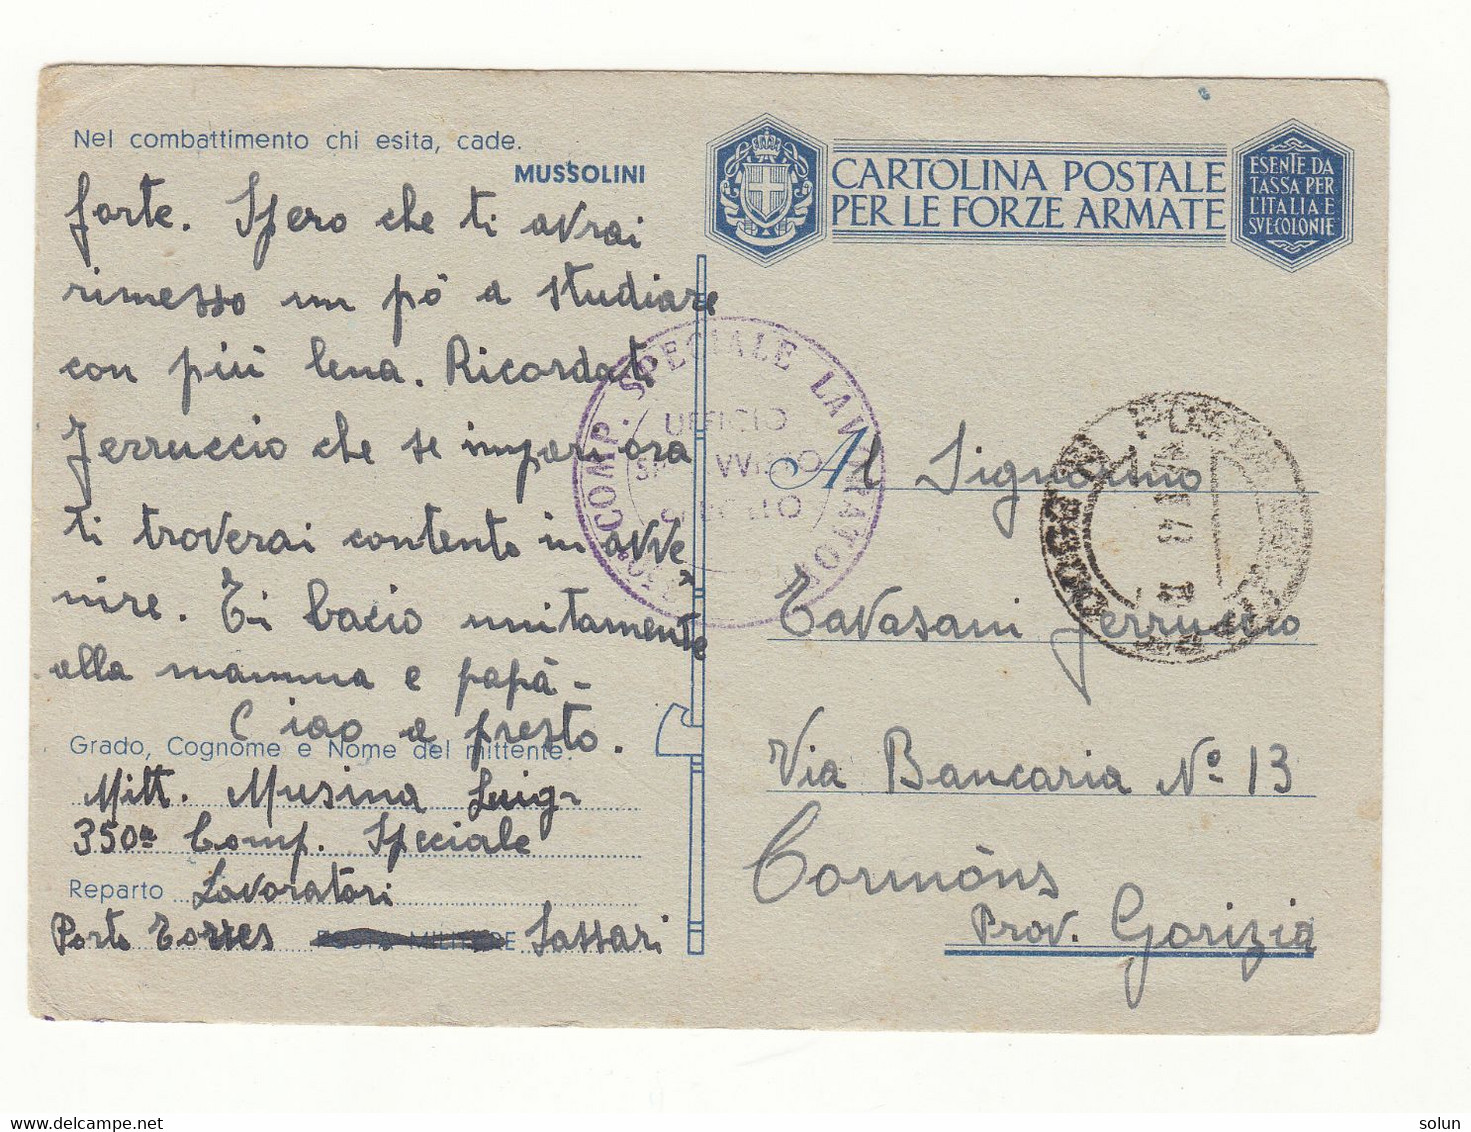 Nel combattimento chi esita, cade.
MUSSOLINI
forte. Spero che ti avrai
rimesso un pò a studiare
con più lena. Ricordati
Ferruccio che se impari ora
ti troverai contento in avve
nire. Ti bacio unitamente
alla mamma e papà -
Ciao a presto.
Grado, Cognome e Nome del mittente.
Mitt. Musina Luigi
350a Comp. Speciale
Reparto Lavoratori
Porto Torres Sassari
CARTOLINA POSTALE
PER LE FORZE ARMATE
ESENTE DA
TASSA PER
L'ITALIA E
SVE COLONIE
COMP. SPECIALE LAVORATORI
UFFICIO
Al Signorino
Tavasani Ferruccio
Via Bancaria No 13
Cormòns
Prov. Gorizia
solun